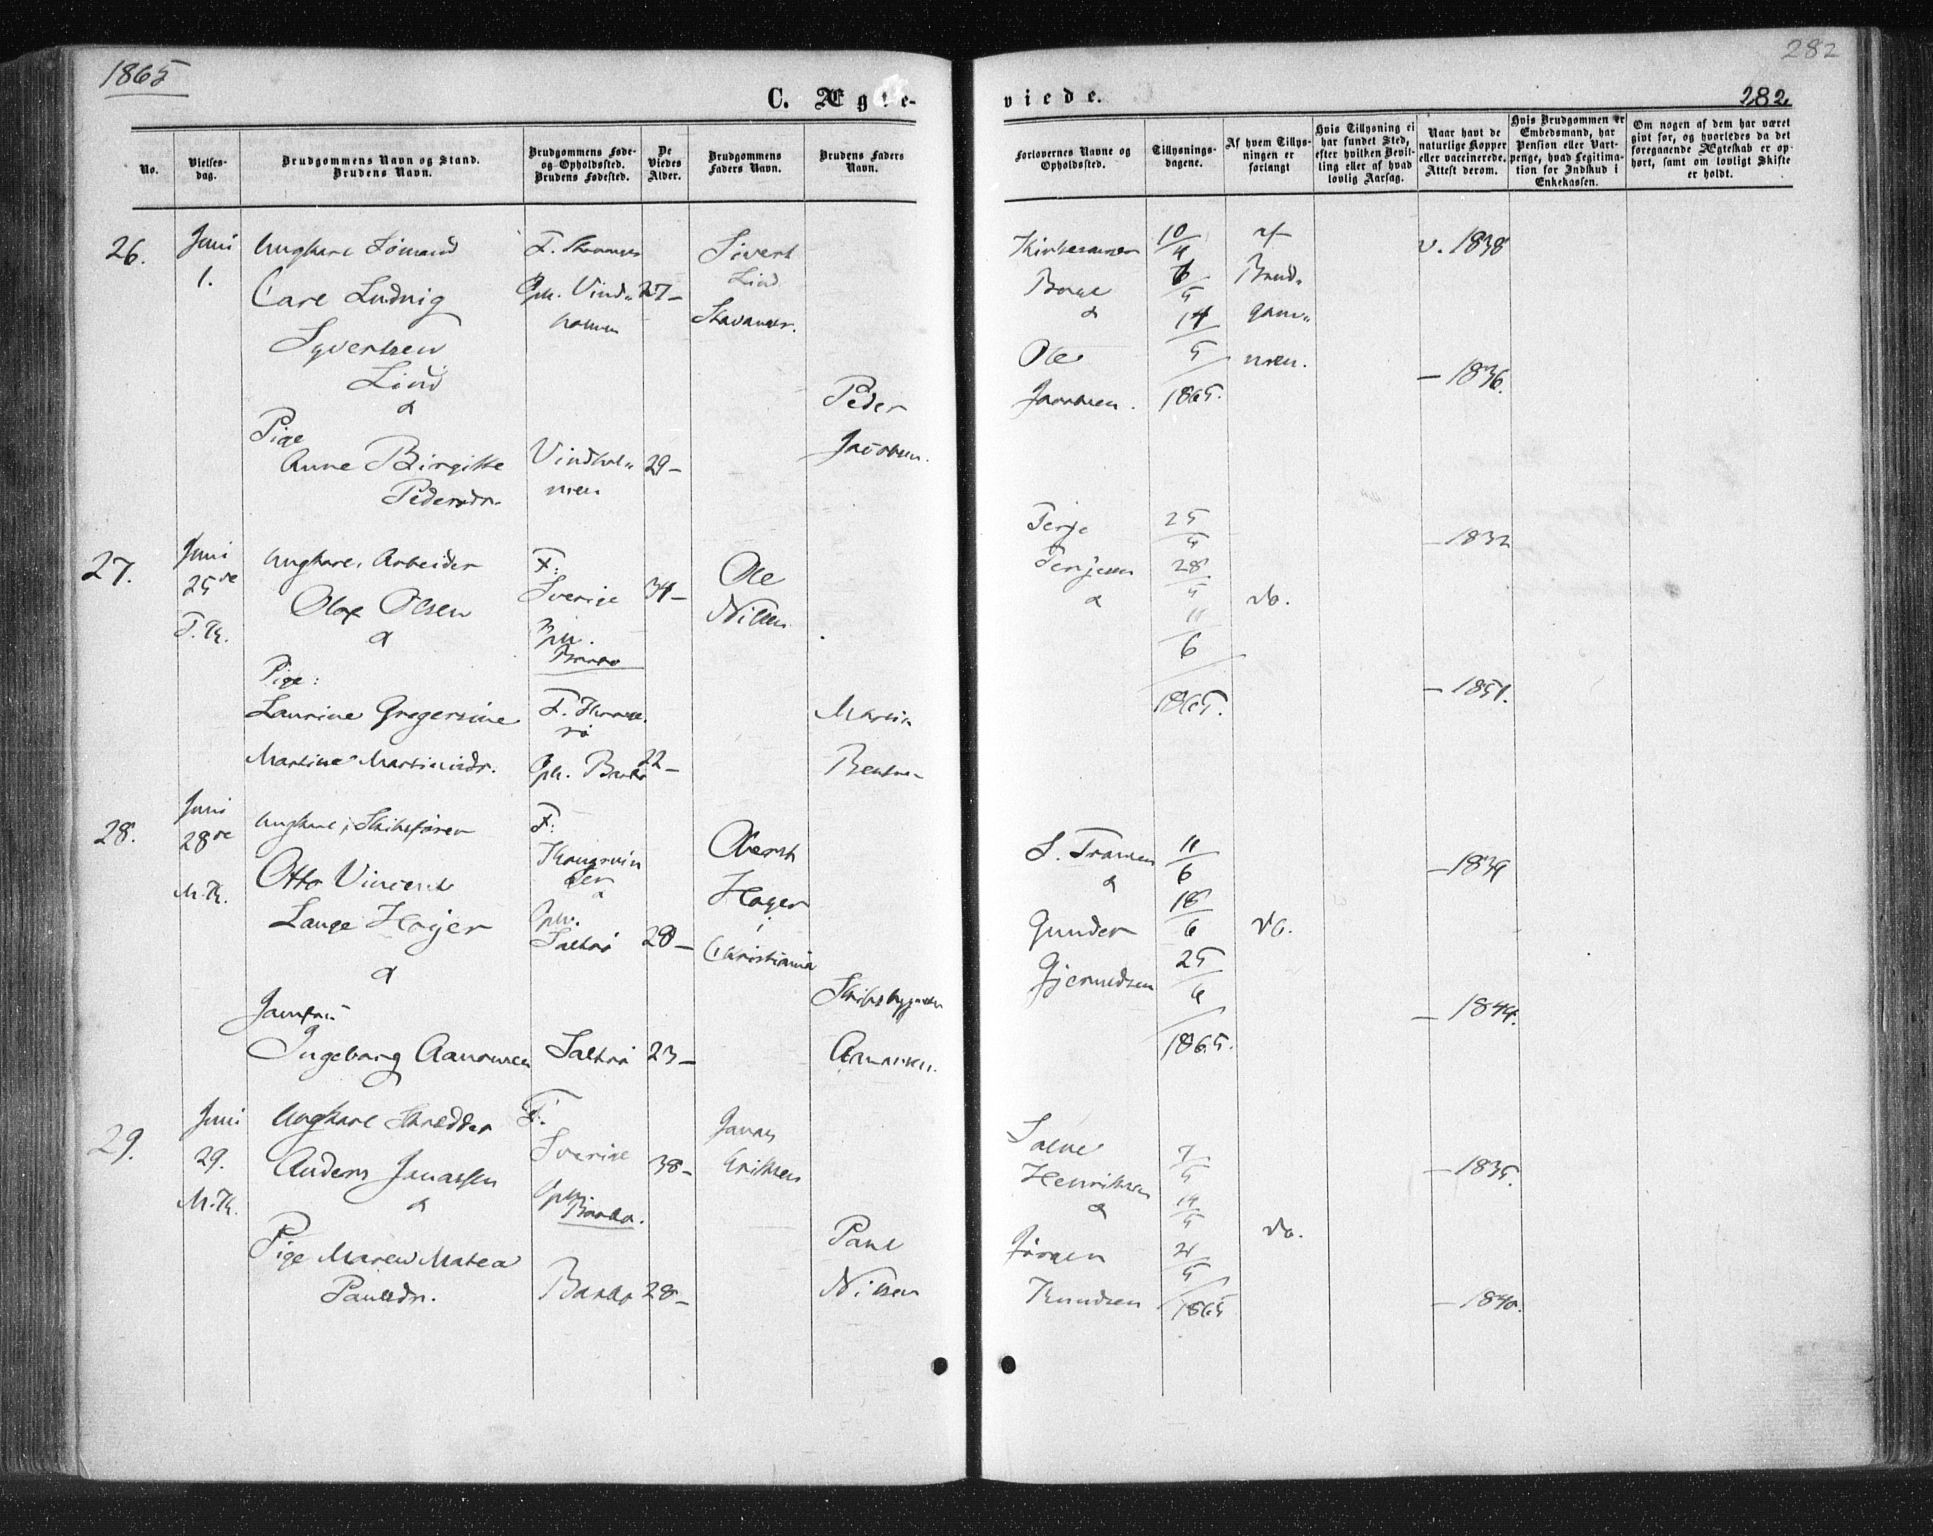 1865
282
C. Ægte-
viede.
282.
No.
Vielses-
dag.
Brudgommens Navn og Stand.
Brudens Navn.
Brudgommens Føde-
og Opholdssted.
Brudens Fødested.
De
Viedes
Alder.
Brudgommens
Faders Navn.
Brudens Faders
Navn.
Forlovernes Navne og
Opholdssted.
Tillysnings-
dagene.
Af hvem Tillys-
ningen er
forlangt
Hvis Tillysning ei
har fundet Sted,
efter hvilken Bevil-
ling eller af hvad
lovlig Aarsag.
Naar havt de
naturlige Kopper
eller vaccinerede.
Attest derom.
Hvis Brudgommen er
Embedsmand, har
Pension eller Vart-
penge, hvad Legitima-
tion for Indskud i
Enkekassen.
Om nogen af dem har været
givt før, og hvorledes da det
foregaaende Ægteskab er op-
hørt, samt om lovligt Skifte
er holdt.
26.
Juni
1.
Ungkarl Sömand
Carl Ludvig
Syvertsen
Lind
&
Pige
Anne Birgitte
Pedersdr.
F.
Oph. Vind-
holmen
27-
Vindhol-
men
29-
Sivert
Lind
Peder
Jacobsen.
&
Ole
Jacobsen.
10/4
14/5
1865.
af
Brud-
gom-
men.
v. 1838
- 1836.
27.
Juni
25de
T.K.
Ungkarl, Arbeider
Olof Olsen
&
Pige:
Laurine Gregersine
Martine Martinsdr.
F:
Sverige
Oph.
Barbo
34-
F.
Oph. Barbo
22-
Ole
Nilsen
Martin
Terje
Terjesen
&
25/5
28/5
11/6
1865.
do.
- 1832
- 1851.
28.
Juni
28de
M.K.
Ungkarl, Skibsförer
Otto Vincent
Lange Hoyer
&
Jomfru
Ingeborg Aanonsen
F:
Kongsvin
ger
&
Oph.
Saltrö
28-
Saltrö
23-
Oberst
Hoyer
i
Christiania
Skibsbygger
Aanonsen.
&
Gunder
Gjermundsen
11/6
18/6
25/6
1865.
do.
- 1839
- 1844.
29.
Juni
29.
M.K.
Ungkarl Skredder
Anders Jonassen
&
Pige Maren Matea
Paulsdr.
F.
Sverige
Oph.
Barbo.
38-
Barbo
28-
Jonas
Eriksen
Paul
Nilsen
Salve
Henriksen
&
Jörgen
Knudsen
7/5
14/5
21/5
1865
do.
- 1835.
- 1840.